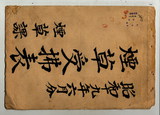 昭和九年六月分
煙草受拂表
煙草課